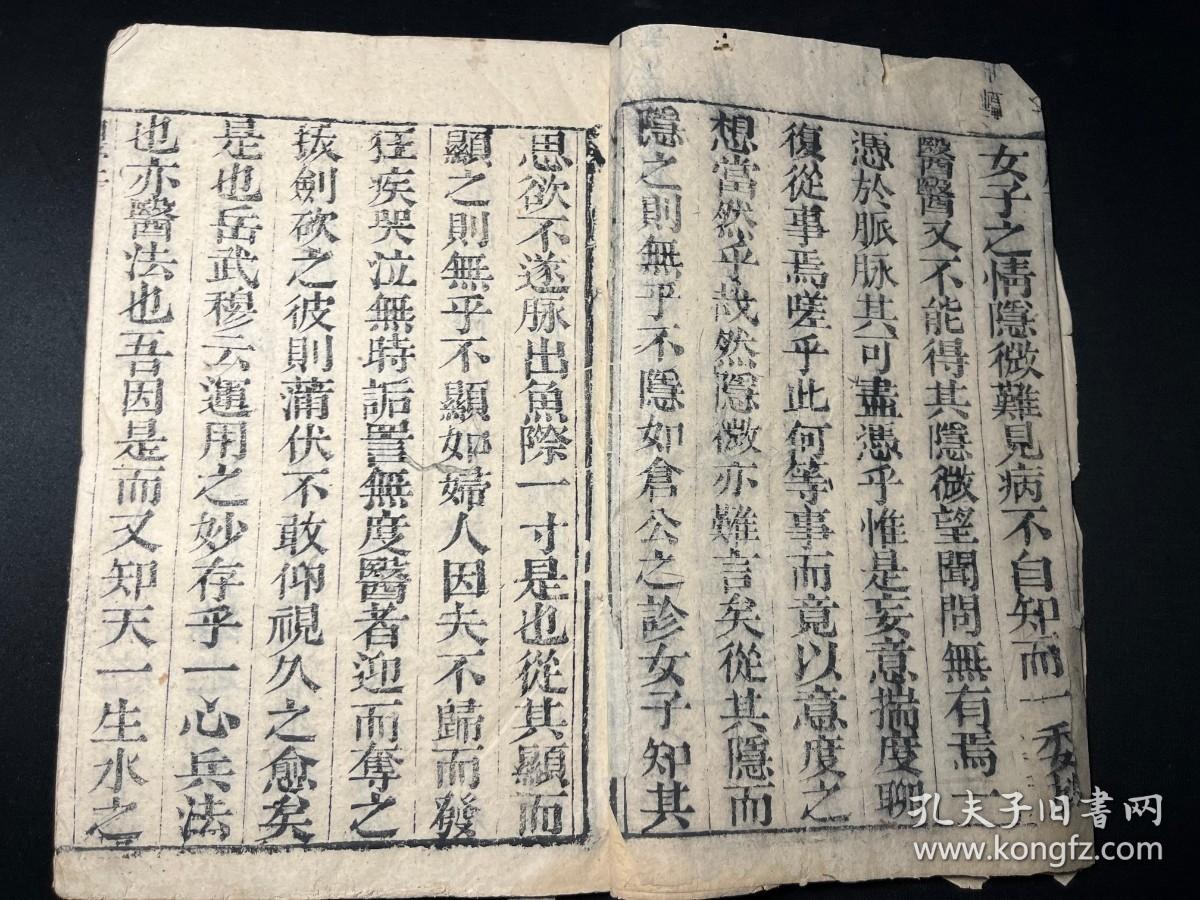 女子之情隱微難見病不自知而一委於
醫醫又不能得其隱微望聞問無有焉一
憑於脈脉其可盡憑乎惟是妄意揣度聊
復從事焉嗟乎此何等事而竟以意度之
想當然乎哉然隱微亦難言矣從其隱而
隱之則無乎不隱如倉公之診女子知其
思欲不遂脉出魚際一寸是也從其顯而
顯之則無乎不顯如婦人因夫不歸而發
狂疾哭泣無時詬詈無度醫者迎而奪之
拔劍砍之彼則蒲伏不敢仰視久之愈矣
是也岳武穆云運用之妙存乎一心兵法
也亦醫法也吾因是而又知天一生水之
孔夫子旧書网
www.kongfz.com